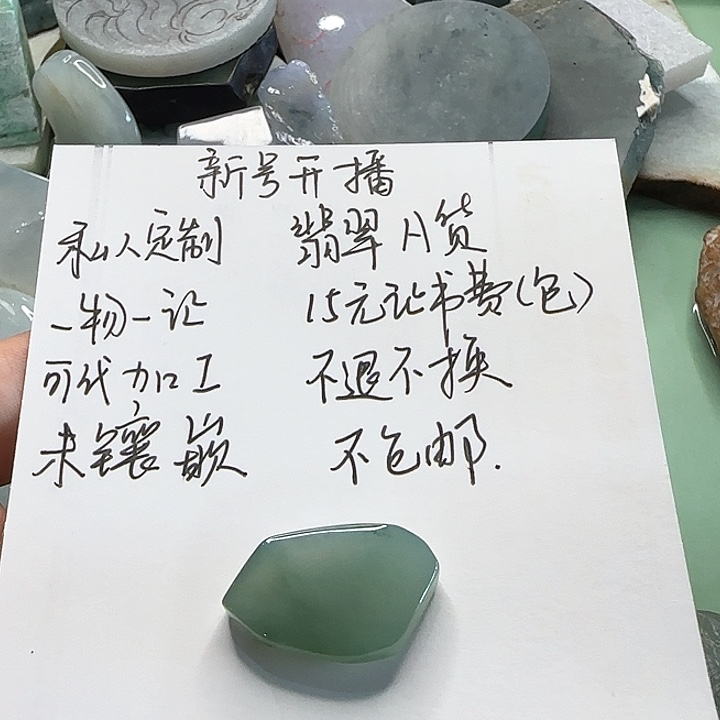 新号开播
私人定制 翡翠A货
一物一证 15元证书费(包)
可代加工 不退不换
未镶嵌 不包邮.